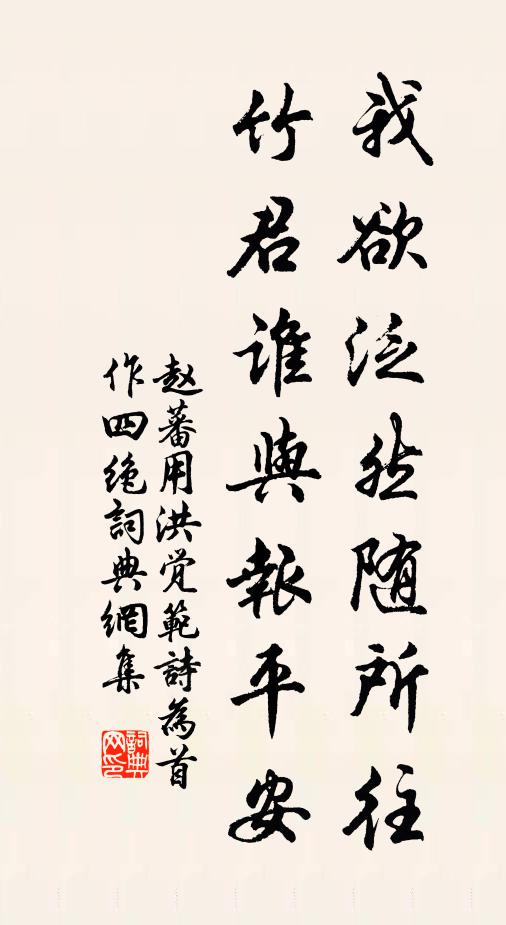 我欲泛然随所往
竹君谁與報平安
赵蕃用洪觉範詩為首
作四绝詞典網集
詞典网印